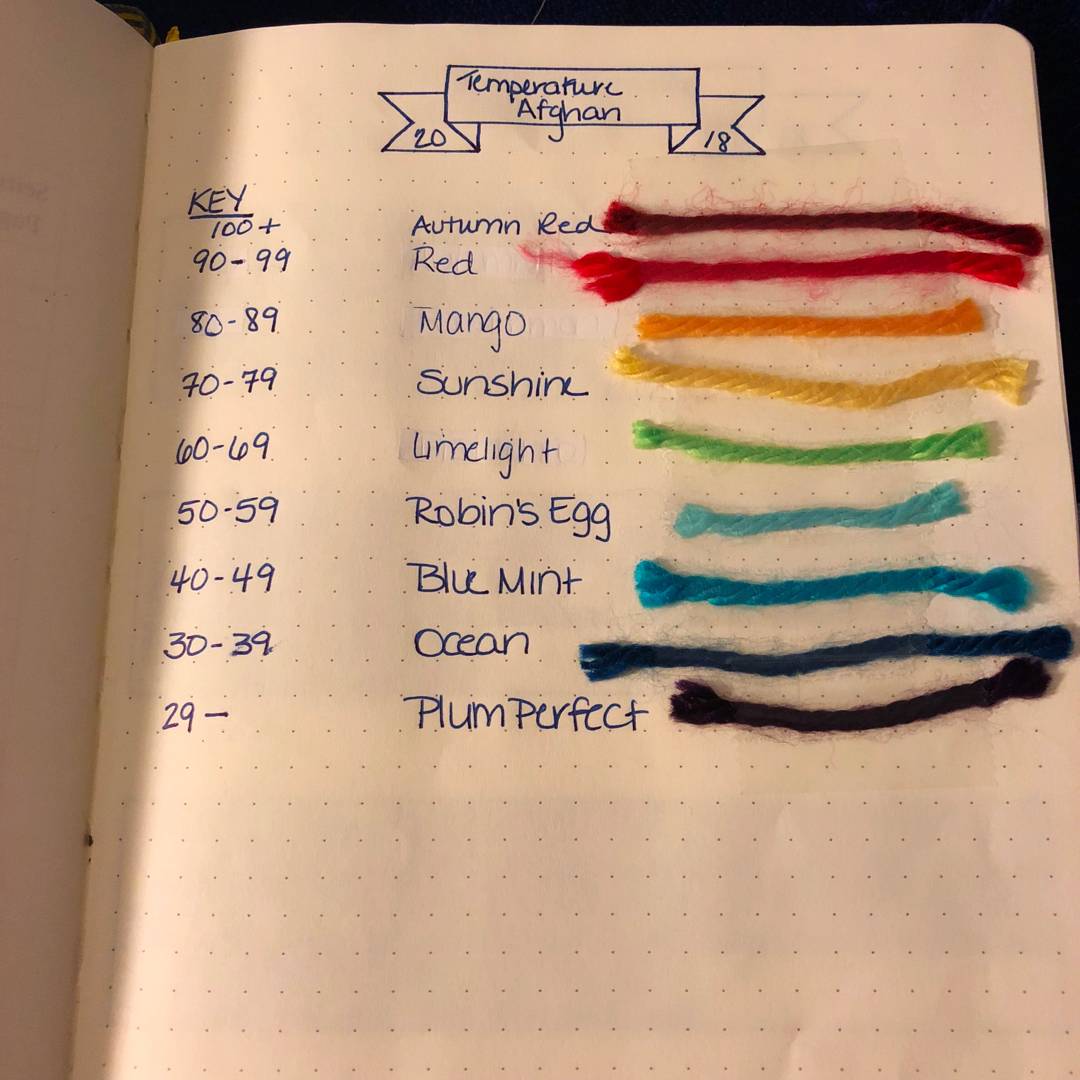 Temperature
Afghan
20 18
KEY
100+ Autumn Red
90-99 Red
80-89 Mango
70-79 Sunshine
60-69 Limelight
50-59 Robin's Egg
40-49 Blue Mint
30-39 Ocean
29- Plum Perfect